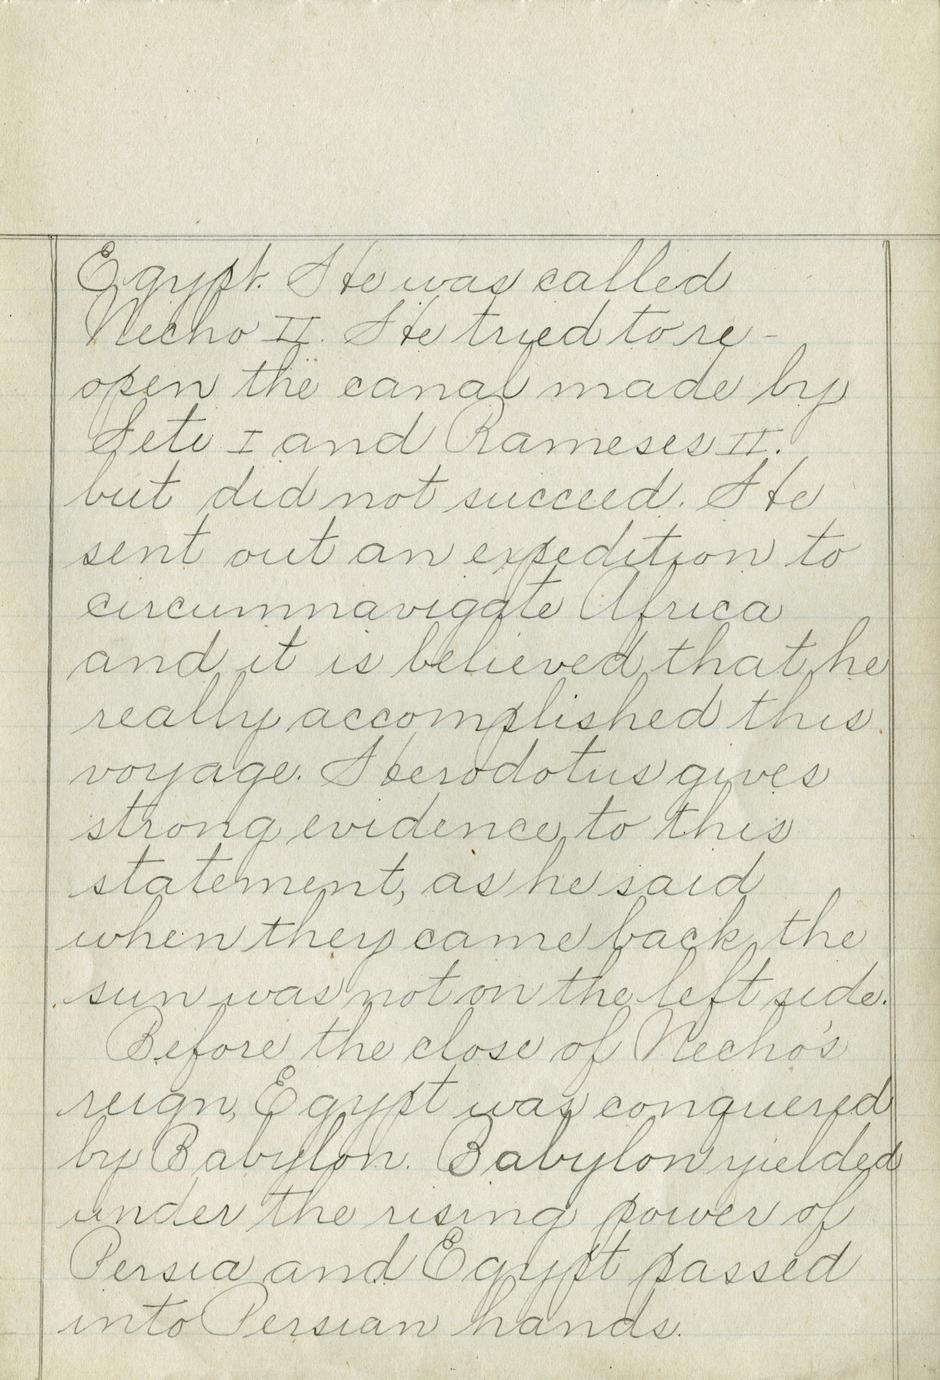 Egypt. He was called
Necho II. He tried to re-
open the canal made by
Seti I and Rameses II.
but did not succeed. He
sent out an expedition to
circumnavigate Africa
and it is believed that he
really accomplished this
voyage. Herodotus gives
strong evidence to this
statement, as he said
when they came back the
sun was not on the left side.
Before the close of Necho's
reign, Egypt was conquered
by Babylon. Babylon yielded
under the rising power of
Persia and Egypt passed
into Persian hands.